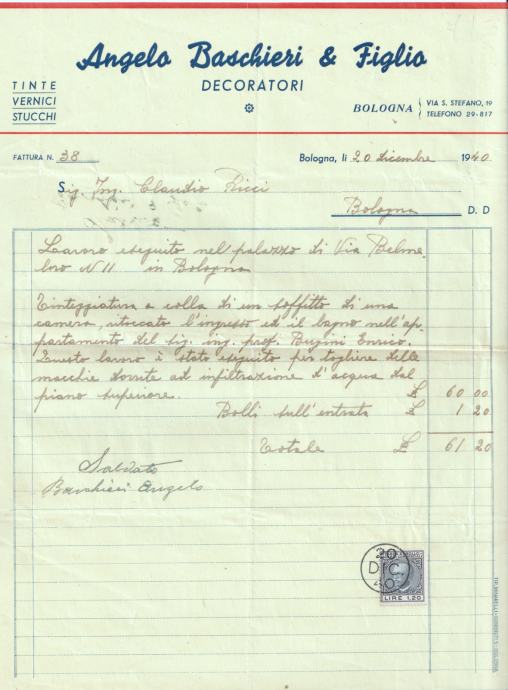 Angelo Baschieri & Figlio
DECORATORI
TINTE
VERNICI
STUCCHI
BOLOGNA
VIA S. STEFANO, 19
TELEFONO 29-817
FATTURA N. 38
Bologna, lì 20 dicembre 1940
Sig. Ing. Claudio Ricci
Bologna D. D
Lavoro eseguito nel palazzo di Via Belme-
loro N 11 in Bologna
Tinteggiatura a colla di un soffitto di una
camera, ritoccato l'ingresso ed il bagno nell'ap-
partamento del sig. ing. prof. Enrico.
Questo lavoro è stato eseguito per togliere delle
macchie dovute ad infiltrazione d'acqua dal
piano superiore. £ 60 00
Bolli sull'entrata £ 1 20
Totale £ 61 20
Saldato
Baschieri Angelo
20
DIC
40
LIRE 1,20